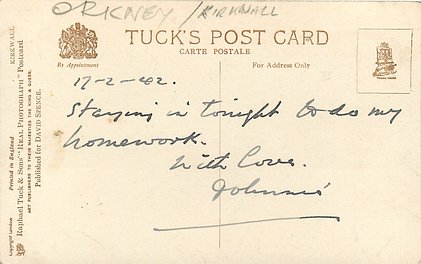 ORKNEY / KIRKWALL
TUCK'S POST CARD
CARTE POSTALE
By Appointment
For Address Only
17-2-42.
Staying in tonight to do my
homework.
With Love.
Johnnie
KIRKWALL
Raphael Tuck & Sons' "REAL PHOTOGRAPH" Postcard
Published for DAVID SPENCE.
ART PUBLISHERS TO THEIR MAJESTIES THE KING & QUEEN.
Printed in England
Copyright London